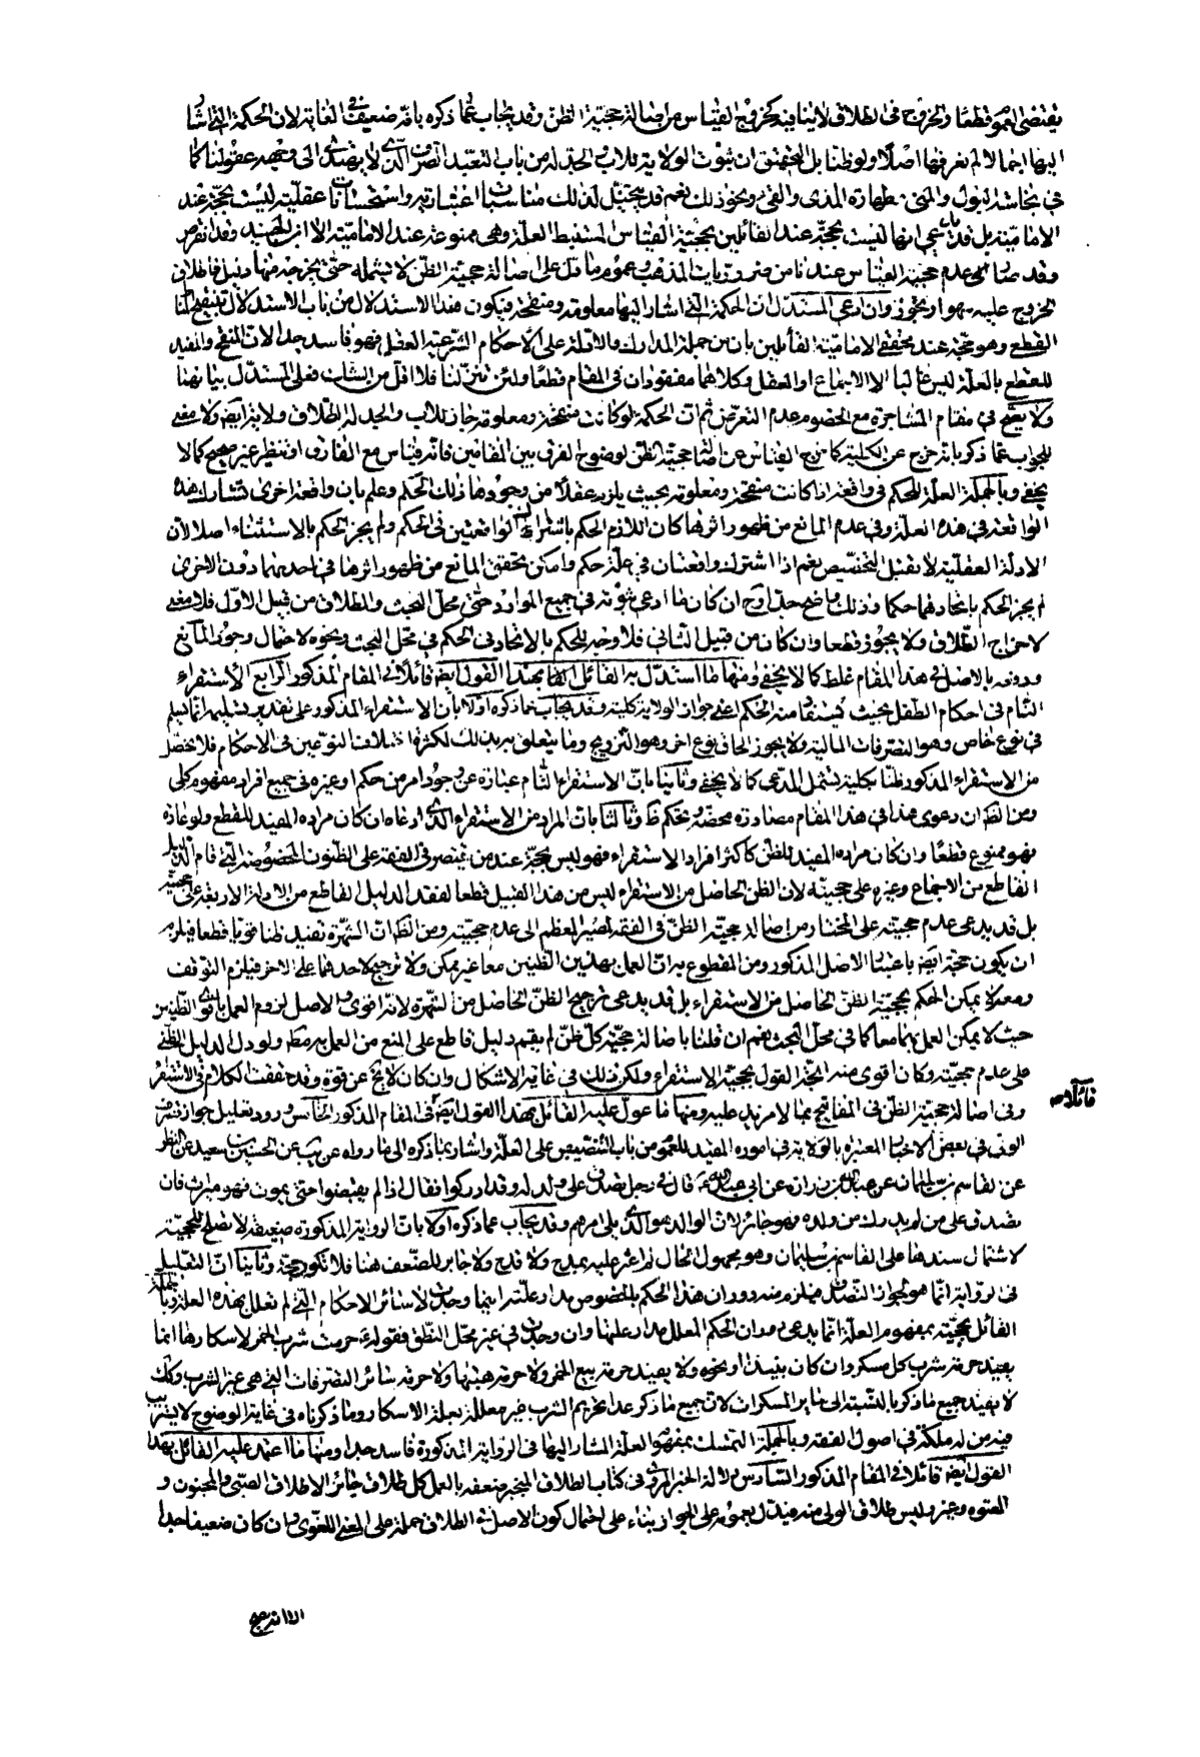 يقتضى العموم قطعا والخروج فى الطلاق لا ينافيه كخروج القياس عن اصالة حجية الظن وقد يجاب عما ذكره بانه ضعيف فى الغاية لان الحكمة التى اشار
اليها اجمالا لم نعرفها اصلا ولو ظنا بل التحقيق ان ثبوت الولاية للاب والجد له من باب التعبد الصرف الذى لا يهتدى الى وجهه عقولنا كما
فى نجاسة البول والمنى وطهارة المذى والقئ ونحو ذلك نعم قد يتخيل لذلك مناسبات اعتبارية واستحسانات عقلية ليست بحجة عند
الامامية بل قد يدعى انها ليست بحجة عند القائلين بحجية القياس المستنبط العلة وهى ممنوعة عند الامامية الا ابن الجنيد وقد انقرض
وقد صار عدم حجية القياس عندنا من ضروريات المذهب وعموم ما دل على اصالة حجية الظن لا تشمله حتى يخرج منها دليل فاطلاق
الخروج عليه سهو او تجوز وان ادعى المستدل ان الحكمة التى اشار اليها معلومة ومنقحة فيكون هذا الاستدلال من باب الاستدلال بتنقيح المناط
القطعى وهو حجة عند محققى الامامية القائلين بان من جملة المدارك والادلة على الاحكام الشرعية العقل فهو فاسد جدا لان المنقح والمفيد
للقطع بالعلة ليس غالبا الا الاجماع او العقل وكلاهما مفقودان فى المقام قطعا ولئن تنزلنا فلا اقل من الشك فعلى المستدل بيانهما
ولا يصح فى مقام المشاجرة مع الخصوم عدم التعرض ثم ان الحكمة لو كانت منقحة ومعلومة جاز للاب والجد له الطلاق ولا يجز ايضا ولا معنى
للجواب عما ذكر بانه خرج عن الكلية كما خرج القياس عن اصالة حجية الظن لوضوح الفرق بين المقامين فانه قياس مع الفارق او تنظير غير صحيح كما لا
يخفى وبالجملة العلة للحكم فى واقعة اذا كانت منقحة ومعلومة بحيث يلزم عقلا من وجودها ذلك الحكم وعلم بان واقعة اخرى تشارك هذه
الواقعة فى هذه العلة وفى عدم المانع من ظهور اثرها كان اللازم الحكم باشتراك الواقعتين فى الحكم ولم يجز الحكم بالاستثناء اصلا لان
الادلة العقلية لا تقبل التخصيص نعم اذا اشترك واقعتان فى علة حكم وامكن تحقق المانع من ظهور اثرها فى احدهما دون الاخرى
لم يجز الحكم باتحادهما حكما وذلك واضح جدا وح ان كان ما ادعى ثبوته فى جميع الموارد حتى محل البحث والطلاق من قبيل الاول فلا معنى
لاخراج الطلاق ولا يجوز قطعا وان كان من قبيل الثانى فلا وجه للحكم بالاتحاد فى الحكم فى محل البحث ونحوه لاحتمال وجود المانع
ودفعه بالاصل فى هذا المقام غلط كما لا يخفى ومنها ما استدل به القائل القائل بهذا القول ايضا قائلا فى المقام المذكور الرابع الاستقراء
التام فى احكام الطفل بحيث يستفاد منه الحكم اعنى جواز الولاية كلية وقد يجاب عما ذكره اولا بان الاستقراء المذكور على تقدير تسليمه انما يسلم
فى نوع خاص وهو التصرفات المالية ولا يجوز الحاق نوع اخر وهو التزويج وما يتعلق به بذلك لكثرة اختلاف النوعين فى الاحكام فلا يحصل
من الاستقراء المذكور ظنا بكلية تشمل المدعى كما لا يخفى وثانيا بان الاستقراء التام عبارة عن وجود امر من حكم او غيره فى جميع افراد مفهوم كلى
ومن الظ ان دعوى هذا فى هذا المقام مصادرة محضة وتحكم ظ وثالثا بان المراد من الاستقراء الذى ادعاه ان كان مراده المفيد للقطع ولو عادة
فهو ممنوع قطعا وان كان مراده المفيد للظن كاكثر افراد الاستقراء فهو ليس بحجة عند من يقتصر فى الفقه على الظنون المخصوصة التى قام الدليل
القاطع من الاجماع وغيره على حجيته لان الظن الحاصل من الاستقراء ليس من هذا القبيل قطعا لفقد الدليل القاطع من الادلة الاربعة على حجيته
بل قد يدعى عدم حجيته على المختار من اصالة حجية الظن فى الفقه لمصير المعظم الى عدم حجيته ومن الظ ان الشهرة تفيد ظنا قويا قطعا فيلزم
ان يكون حجة ايضا باعتبار الاصل المذكور ومن المقطوع به ان العمل بهذين الظنين معا غير ممكن ولا ترجيح لاحدهما على الاخر فيلزم التوقف
ومعه لا يمكن الحكم بحجية الظن الحاصل من الاستقراء بل قد يدعى ترجيح الظن الحاصل من الشهرة لانه اقوى والاصل لزوم العمل باقوى الظنين
حيث لا يمكن العمل بهما معا كما فى محل البحث نعم ان قلنا باصالة حجية كل ظن لم يقم دليل قاطع على المنع من العمل به مط ولو دل الدليل الظنى
على عدم حجيته وكان اقوى منه اتجه القول بحجية الاستقراء ولكن ذلك فى غاية الاشكال وان كان لا يخ عن قوة وقد حققت الكلام فى الاستقراء
وفى اصالة حجية الظن فى المفاتيح بما لا مزيد عليه ومنها ما عول عليه القائل بهذا القول ايضا فى المقام المذكور الخامس ورود تعليل جواز تصرف
الولى فى بعض الاخبار المعتبرة بالولاية فى اموره المفيد للعموم من باب التنصيص على العلة واشار بما ذكره الى ما رواه عن يب عن الحسين بن سعيد عن النظر
عن القاسم بن سليمان عن عبيد بن زرارة عن ابى عبد الله ع قال فى رجل تصدق على ولد له وقد ادركوا فقال اذا لم يقبضوا حتى يموت فهو ميراث فان
تصدق على من لم يدرك من ولده فهو جائز لان الوالد هو الذى يلى امرهم وقد يجاب عما ذكره اولا بان الرواية المذكورة ضعيفة لا تصلح للحجية
لاشتمال سندها على القاسم بن سليمان وهو مجهول الحال لم اعثر عليه بمدح ولا قدح ولا جابر للضعف هنا فلا تكون حجة وثانيا ان التعليل
فى الرواية انما هو لجواز التصدق فيلزم منه دوران هذا الحكم بالخصوص مدار علته اينما وجدت لا سائر الاحكام التى لم تعلل بهذه العلة وبالجملة
القائل بحجية مفهوم العلة انما يدعى دوران الحكم المعلل مدار علتها وان وجدت فى غير محل النطق فقوله ع حرمت شرب الخمر لاسكارها انما
يفيد حرمة شرب كل مسكر وان كان نبيذا او نحوه ولا يفيد حرمة بيع الخمر ولا حرمة هبتها ولا حرمة سائر التصرفات التى هى غير الشرب وكذلك
لا يفيد جميع ما ذكر بالنسبة الى سائر المسكرات لان جميع ما ذكر عدا تحريم الشرب غير معللة بعلة الاسكار وما ذكرناه فى غاية الوضوح لا يستريب
فيه من له ملكة فى اصول الفقه وبالجملة التمسك بمفهوم العلة المشار اليها فى الرواية المذكورة فاسد جدا ومنها ما اعتمد عليه القائل بهذا
القول ايضا قائلا فى المقام المذكور السادس دلالة الخبر المروى فى كتاب الطلاق المنجبر ضعفه بالعمل كل طلاق جائز الا طلاق الصبى والمجنون و
المعتوه وغيره وليس طلاق الولى منه فيدل بعمومه على الجواز بناء على احتمال كون الاصل فى الطلاق حمله على المعنى اللغوى وان كان ضعيفا جدا
قائلا مه
الا انه يصح